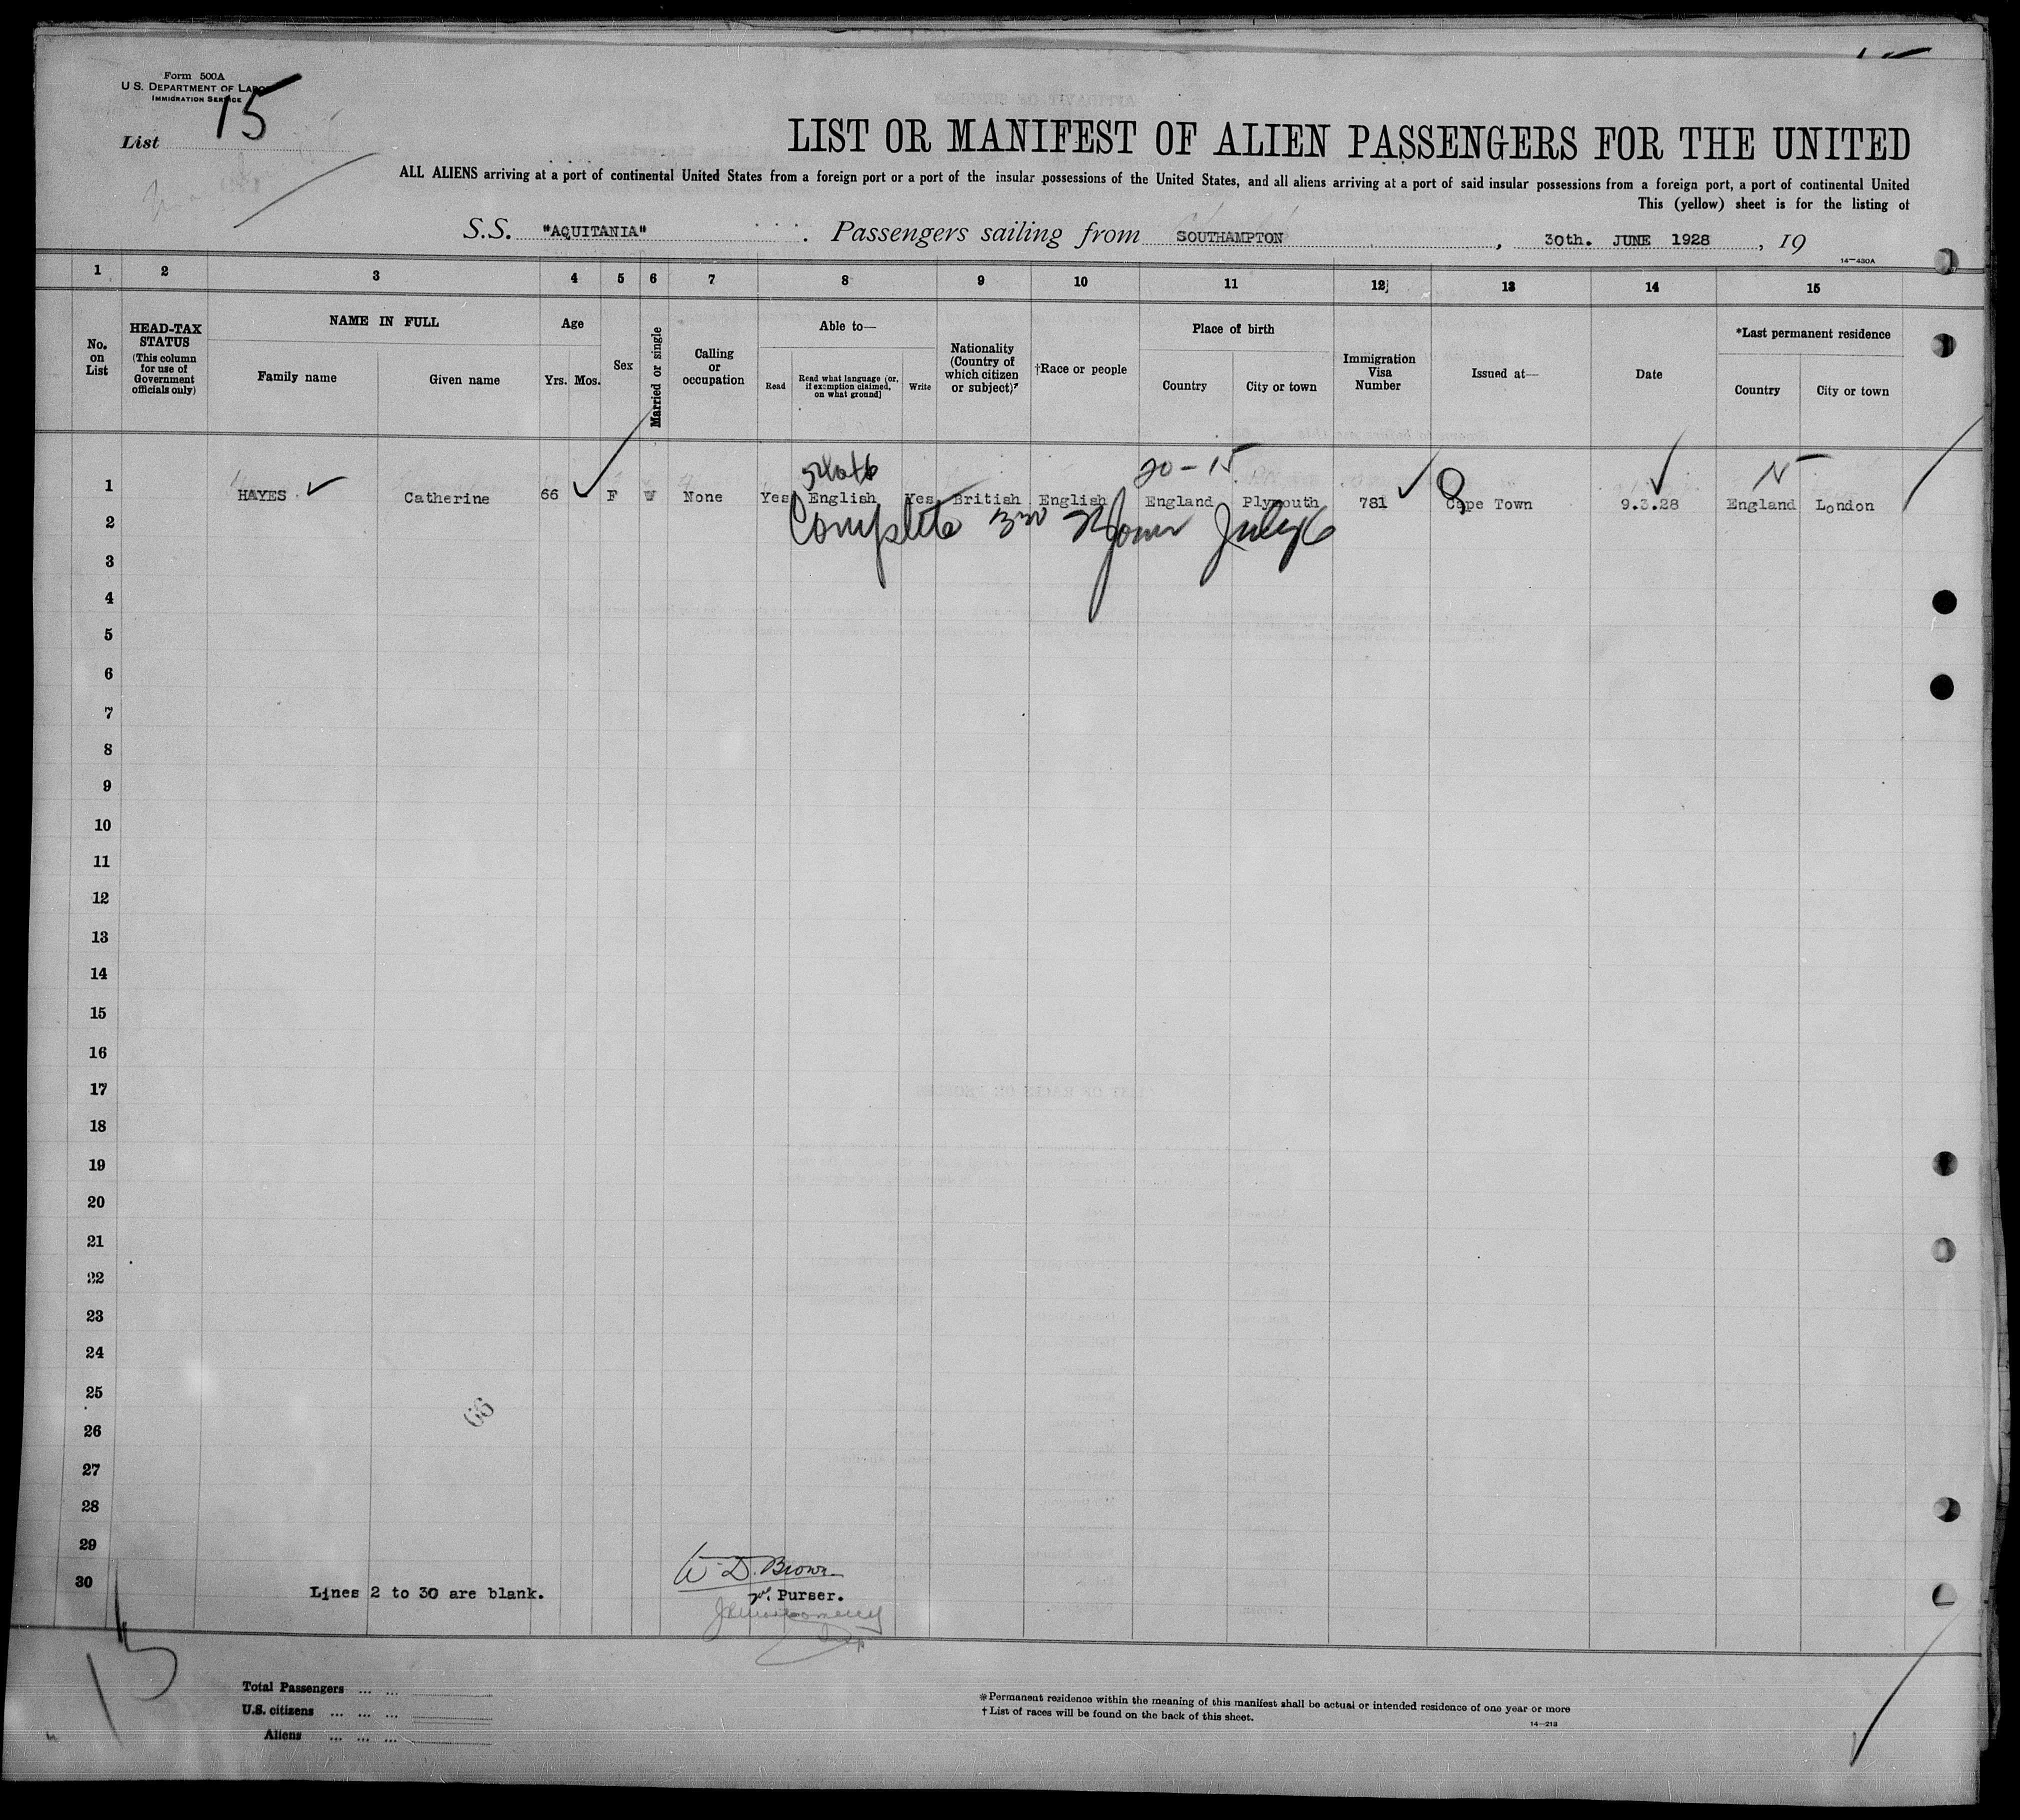 Form 500A
U.S. DEPARTMENT OF LABOR
IMMIGRATION SERVICE
List 15
LIST OR MANIFEST OF ALIEN PASSENGERS FOR THE UNITED
ALL ALIENS arriving at a port of continental United States from a foreign port or a port of the insular possessions of the United States, and all aliens arriving at a port of said insular possessions from a foreign port, a port of continental United
This (yellow) sheet is for the listing of
S.S. "AQUITANIA" . Passengers sailing from SOUTHAMPTON , 30th. JUNE 1928 , 19
14—430A
1 2 3 4 5 6 7 8 9 10 11 12 13 14 15
No. on List
HEAD-TAX STATUS (This column for use of Government officials only)
NAME IN FULL
Family name
Given name
Age
Yrs. Mos.
Sex
Married or single
Calling or occupation
Able to—
Read
Read what language [or, if exemption claimed, on what ground]
Write
Nationality (Country of which citizen or subject)
†Race or people
Place of birth
Country
City or town
Immigration Visa Number
Issued at—
Date
*Last permanent residence
Country
City or town
20-15 N
1 HAYES Catherine 66 F W None Yes English Yes British English England Plymouth 781 Cape Town 9.3.28 England London
Complete July 6
2
3
4
5
6
7
8
9
10
11
12
13
14
15
16
17
18
19
20
21
22
23
24
25
66
26
27
28
29
W. D. Brown
30 Lines 2 to 30 are blank. Purser.
15
Total Passengers ... ...
U.S. citizens ... ... ...
Aliens ... ... ...
*Permanent residence within the meaning of this manifest shall be actual or intended residence of one year or more
†List of races will be found on the back of this sheet.
14—213